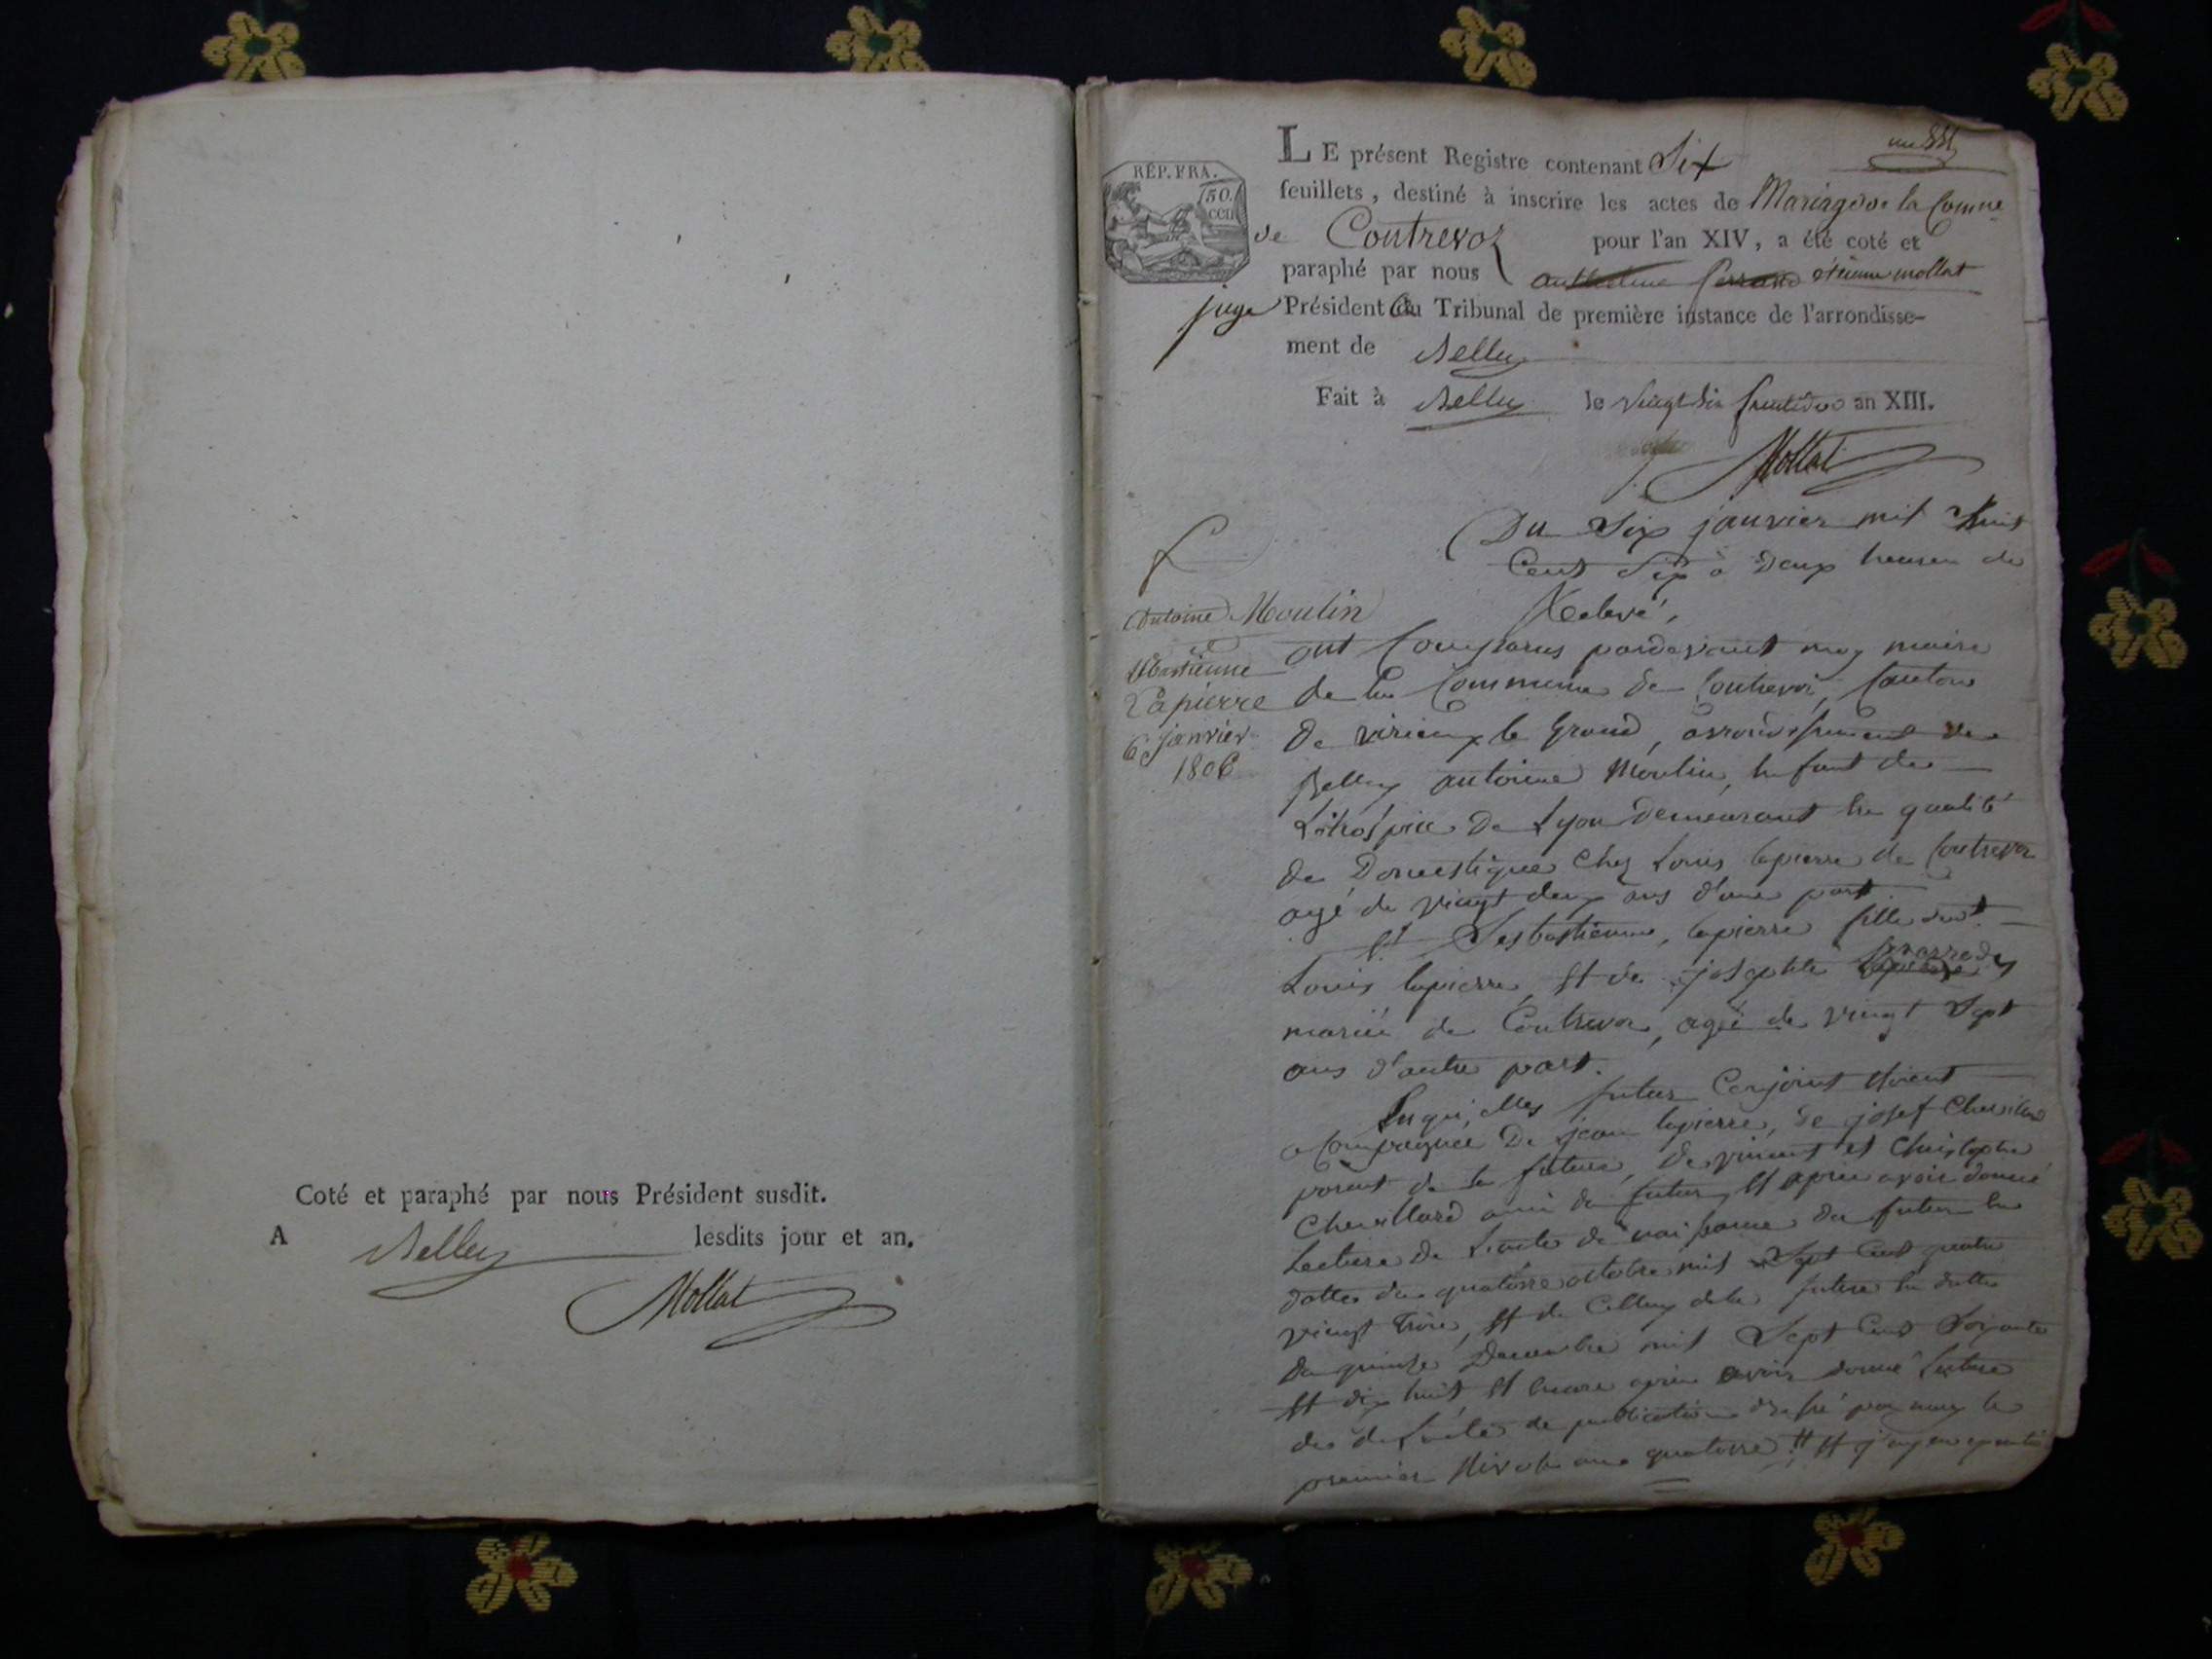 Coté et paraphé par nous Président susdit.
A Belley lesdits jour et an.
Mollat
RÉP. FRA.
50.
cen
LE présent Registre contenant Six
feuillets, destiné à inscrire les actes de Mariage de la Comne
de Contrevoz pour l'an XIV, a été coté et
paraphé par nous etienne mollat
juge Président du Tribunal de première instance de l'arrondisse-
ment de Belley
Fait à Belley le vingt six fructidor an XIII.
Mollat
Du Six janvier mil huit
Cent Six à Deux heures de
Relevé,
Antoine Moulin
et
Sebastienne
Lapierre
6 janvier
1806
ont Comparus pardevant moy maire
de la Commune de Contrevoz, Canton
de virieux le grand, arrondissement de
Belley antoine Moulin, enfant de
L'hospice de Lyon Demeurant en qualité
de Domestique Chez Louis lapierre de Contrevoz
agé de vingt deux ans d'une part
Et Sesbastienne, lapierre fille de
Louis lapierre, Et de josephte
mariée de Contrevoz, agée de vingt Sept
ans d'autre part.
Lesquelles futur Conjoint étoient
acompagnée De jean lapierre, de josef Chevillard
parent de la future, De vincent et Christophe
Chevillard ami du futur, Et aprés avoir donné
Lecture de L'acte de naissance du futur en
datte du quatorse octobre mil Sept Cent quatre
vingt trois, Et de Celluy de la future en datte
Du quinse Decembre mil Sept Cent Soixante
Et dix huit, Et encore aprés avoir donné Lecture
de L'acte de publication dressé par nous le
premier Nivose an quatorse Et